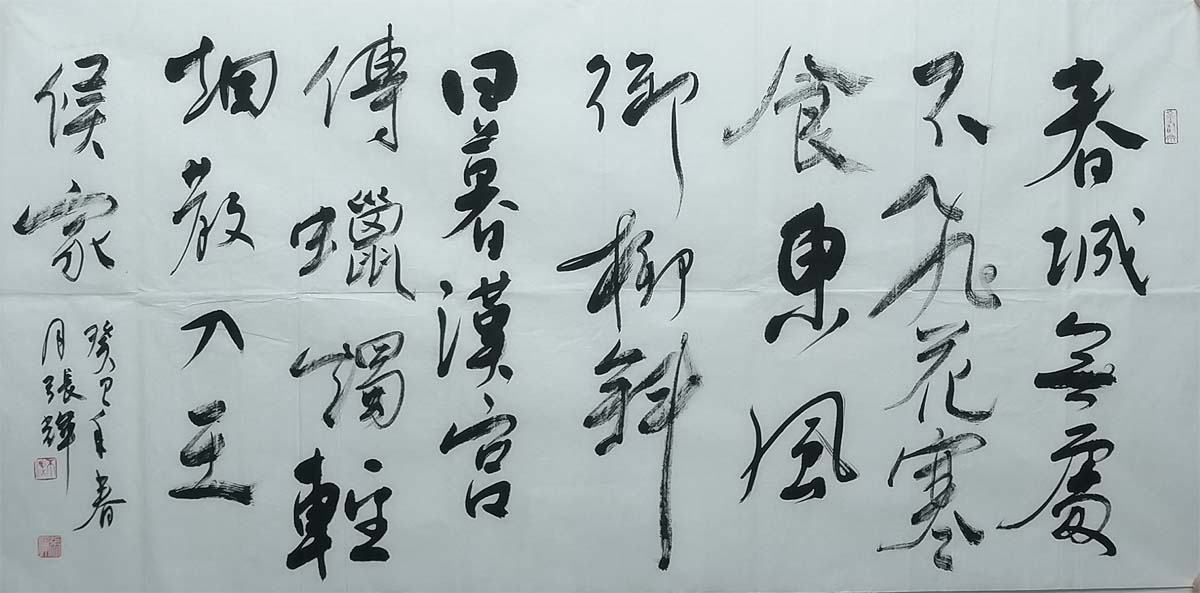 春城無處
不飛花寒
食東風
御柳斜
日暮漢宮
傳蠟燭輕
烟散入五
侯家
癸年春
月張輝